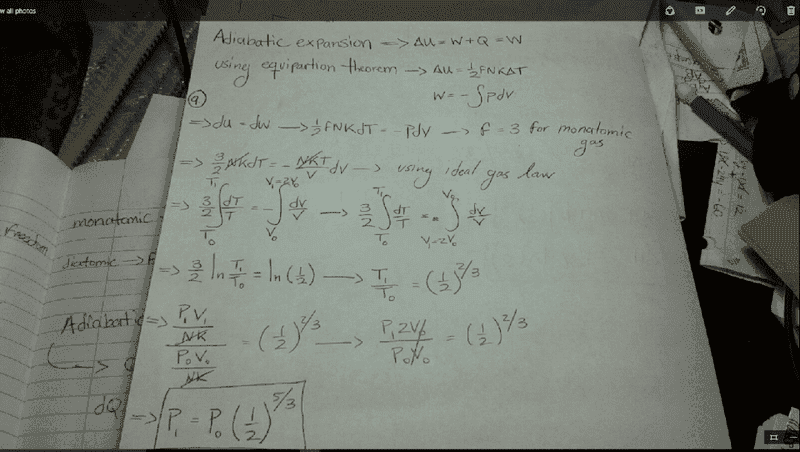 w all photos
Adiabatic expansion => ΔU = W + Q = W
using equipartion theorem → ΔU = ½fNKΔT
W = -∫PdV
(a)
=> du = dw → ½fNKdT = -PdV → f = 3 for monatomic gas
=> 3/2 NKdT = -NKT/V dV → using ideal gas law
=> 3/2 ∫_{T₀}^{T₁} dT/T = -∫_{V₀}^{V₁=2V₀} dV/V → 3/2 ∫_{T₀}^{T₁} dT/T = ∫_{V₁=2V₀}^{V₀} dV/V
=> 3/2 ln T₁/T₀ = ln (1/2) → T₁/T₀ = (1/2)^{2/3}
=> (P₁V₁/NK)/(P₀V₀/NK) = (1/2)^{2/3} → P₁2V₀/P₀V₀ = (1/2)^{2/3}
=> P₁ = P₀ (1/2)^{5/3}
Freedom
monatomic
diatomic → f
Adiabatic
dQ